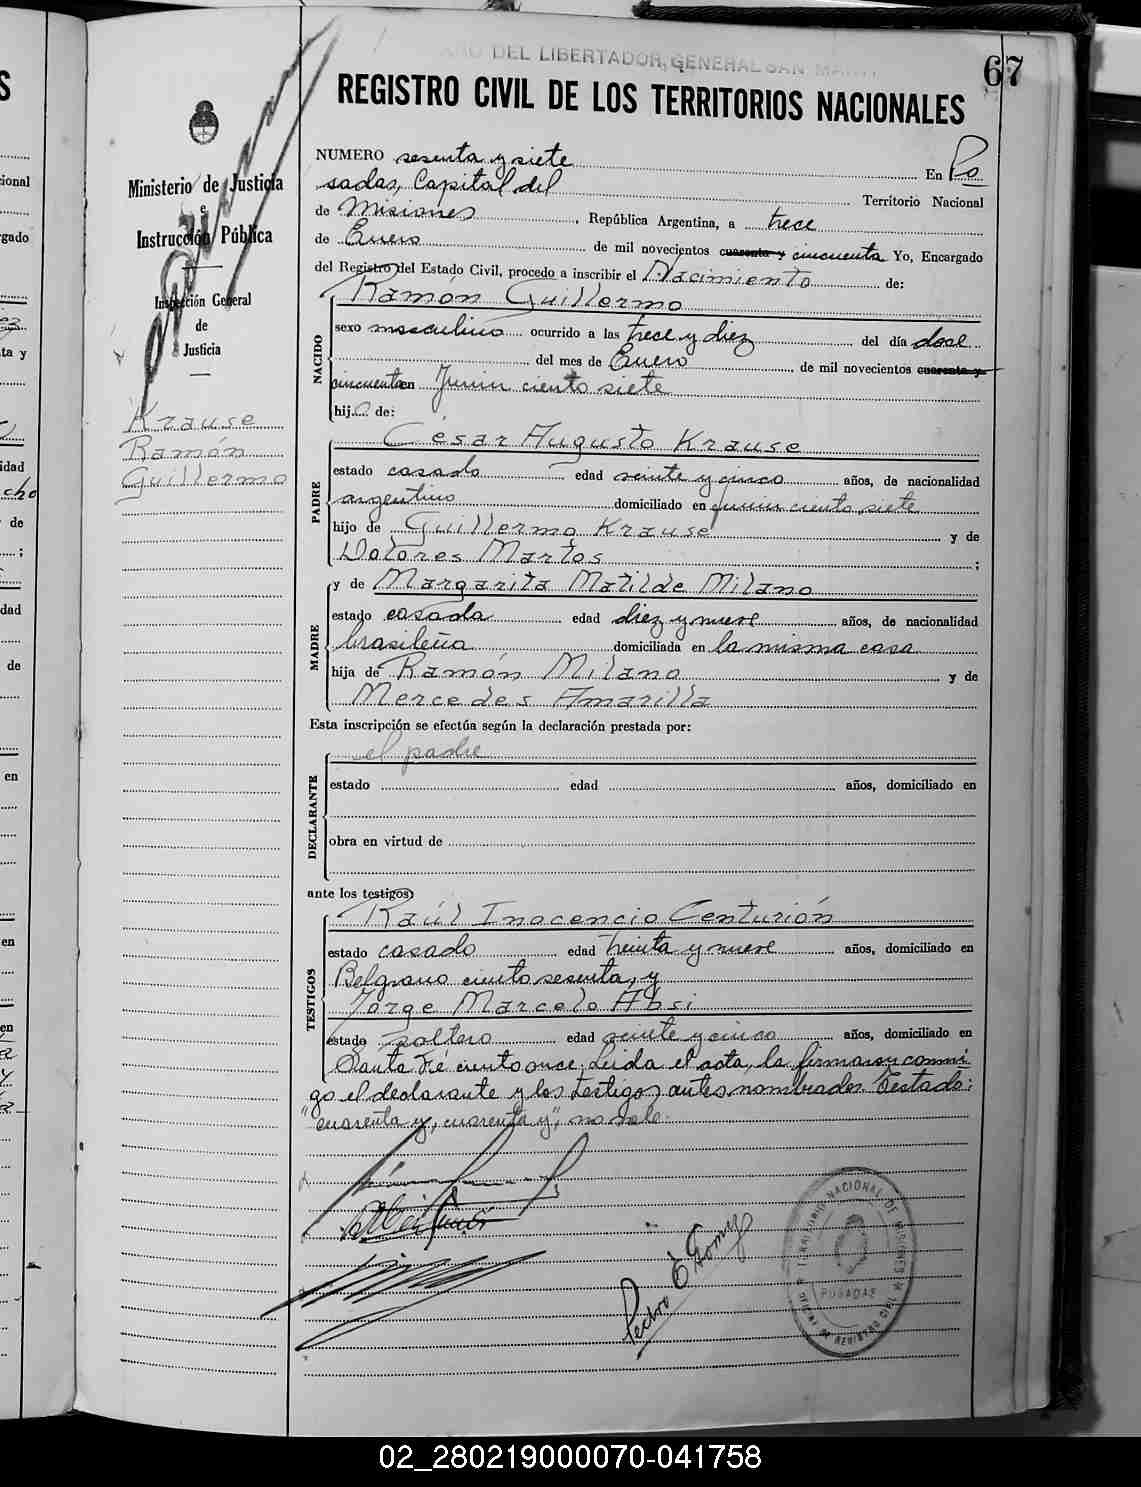 DEL LIBERTADOR GENERAL SAN MARTI
67
REGISTRO CIVIL DE LOS TERRITORIOS NACIONALES
Ministerio de Justicia
e
Instrucción Pública
Inspección General
de
Justicia
Krause
Ramón
Guillermo
NUMERO sesenta y siete En Po
sadas, Capital del Territorio Nacional
de Misiones, República Argentina, a trece
de Enero de mil novecientos cuarenta y cincuenta Yo, Encargado
del Registro del Estado Civil, procedo a inscribir el Nacimiento de:
Ramón Guillermo
NACIDO
sexo masculino ocurrido a las trece y diez del día doce
del mes de Enero de mil novecientos cuarenta y
cincuenta en Junin ciento siete
hijo de:
PADRE
César Augusto Krause
estado casado edad veinte y cinco años, de nacionalidad
argentino domiciliado en Junin ciento siete
hijo de Guillermo Krause y de
Dolores Martos;
MADRE
y de Margarita Matilde Milano
estado casada edad diez y nueve años, de nacionalidad
brasileña domiciliada en la misma casa
hija de Ramón Milano y de
Mercedes Amarilla
Esta inscripción se efectúa según la declaración prestada por:
DECLARANTE
el padre
estado edad años, domiciliado en
obra en virtud de
ante los testigos:
TESTIGOS
Raúl Inocencio Centurión
estado casado edad treinta y nueve años, domiciliado en
Belgrano ciento sesenta, y
Jorge Marcelo Absi
estado soltero edad veinte y cinco años, domiciliado en
Santa Fé ciento once. Leida el acta, la firmaron conmi
go el declarante y los testigos antes nombrados. Testado:
"cuarenta y, cuarenta y", no vale.
Pedro E Gomez
TERRITORIO NACIONAL DE MISIONES
POSADAS
OFICINA DE REGISTRO CIVIL
02_280219000070-041758